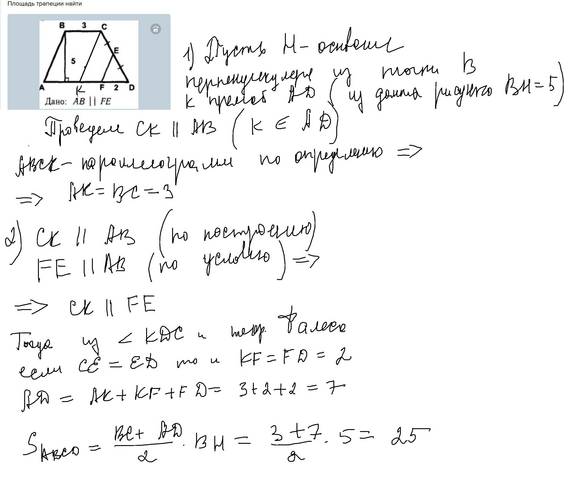 Площадь трапеции найти
B 3 C
E
5
A K F 2 D
Дано: AB || FE
1) Пусть H - основание
перпендикуляра из точки B
к прямой AD (из данного рисунка BH = 5)
Проведем CK || AB (K ∈ AD)
ABCK - параллелограмм по определению =>
=> AK = BC = 3
2) CK || AB (по построению)
FE || AB (по условию) =>
=> CK || FE
Тогда из ∠ KDC и теор. Фалеса
если CE = ED то и KF = FD = 2
AD = AK + KF + FD = 3 + 2 + 2 = 7
S ABCD = BC + AD / 2 · BH = 3 + 7 / 2 · 5 = 25